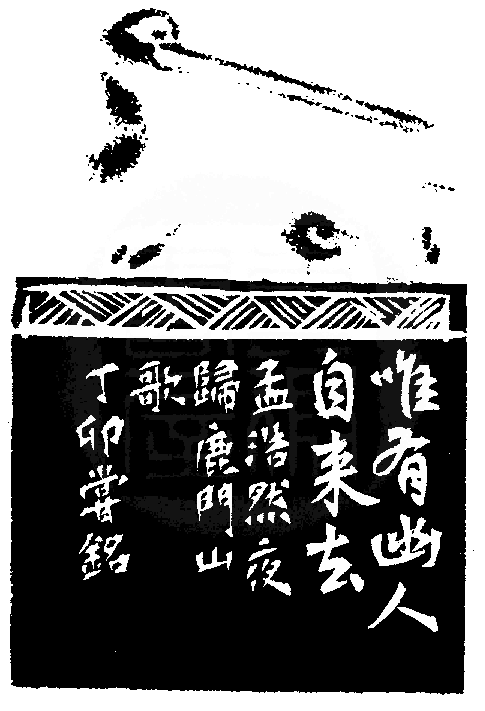 唯有幽人
自来去
孟浩然夜
歸鹿門山
歌
丁卯嘗銘